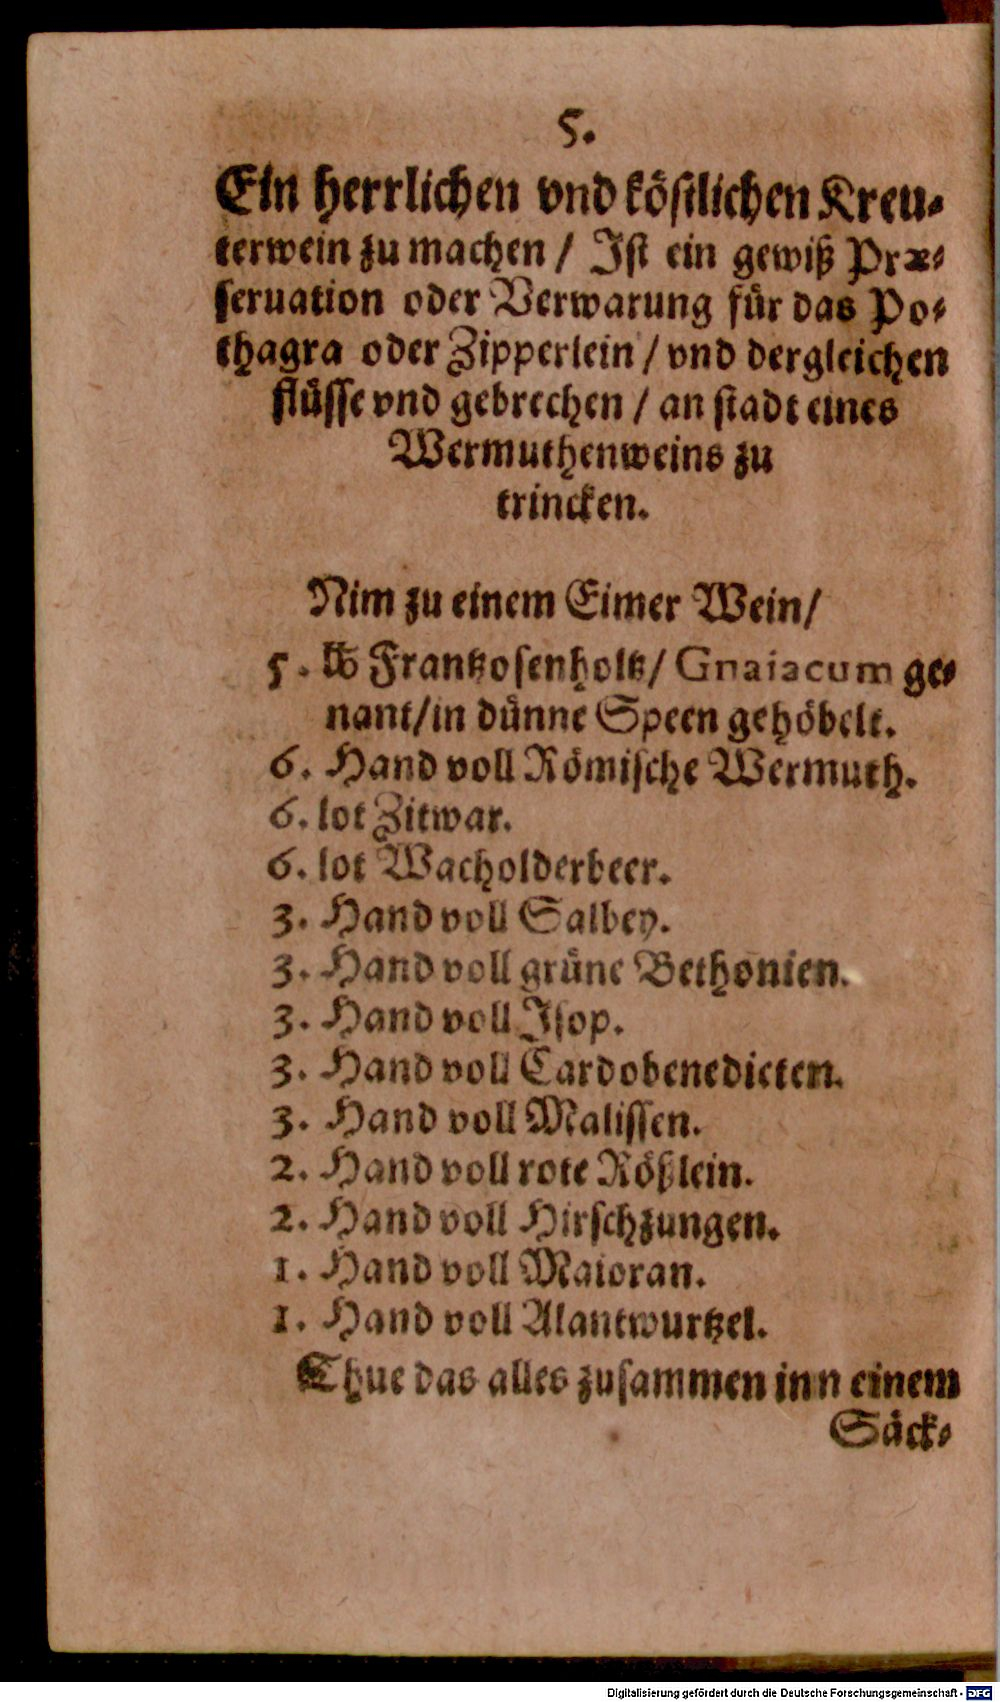 5.
Ein herrlichen vnd köstlichen Kreu-
terwein zu machen / Ist ein gewiß Præ-
seruation oder Verwarung für das Po-
thagra oder Zipperlein / vnd dergleichen
flüsse vnd gebrechen / an stadt eines
Wermuthenweins zu
trincken.
Nim zu einem Eimer Wein/
5. ℔ Frantzosenholtz/ Gnaiacum ge-
nant/in dünne Speen gehöbelt.
6. Hand voll Römische Wermuth.
6. lot Zitwar.
6. lot Wacholderbeer.
3. Hand voll Salbey.
3. Hand voll grüne Bethonien.
3. Hand voll Isop.
3. Hand voll Cardobenedicten.
3. Hand voll Malissen.
2. Hand voll rote Rößlein.
2. Hand voll Hirschzungen.
1. Hand voll Maioran.
1. Hand voll Alantwurtzel.
Thue das alles zusammen inn einem
Säck-
Digitalisierung gefördert durch die Deutsche Forschungsgemeinschaft - DFG